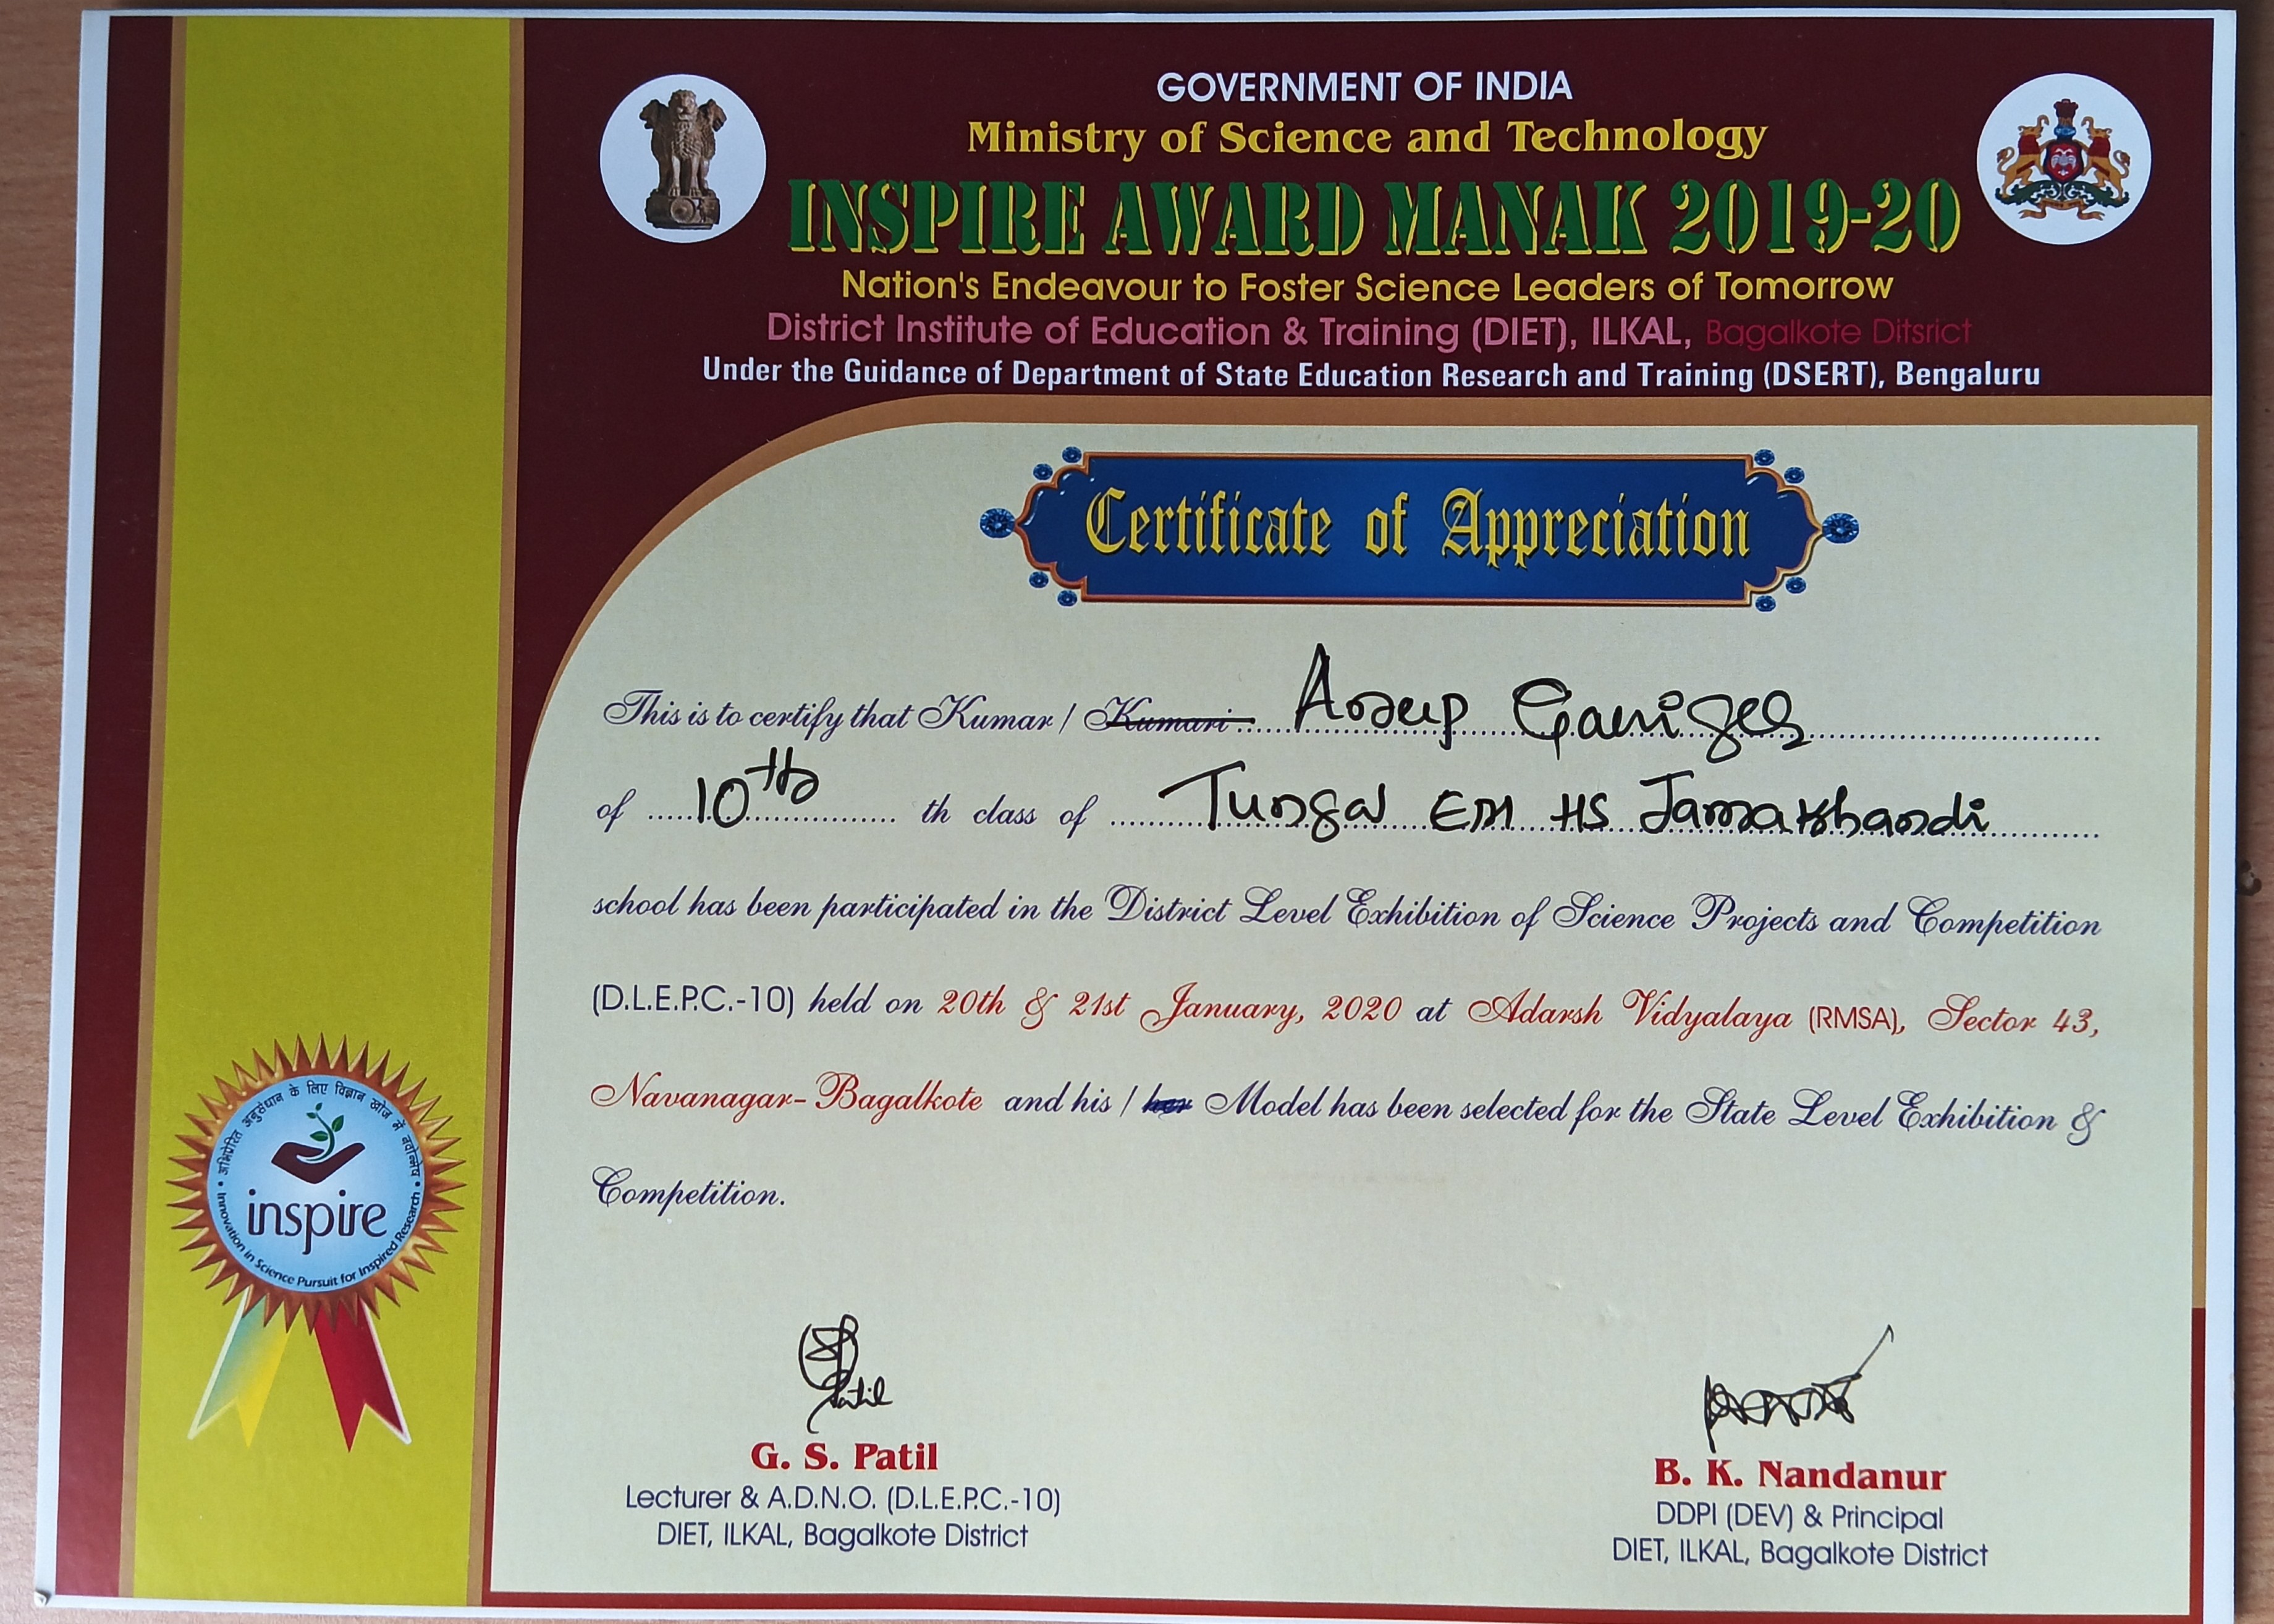 GOVERNMENT OF INDIA
Ministry of Science and Technology
INSPIRE AWARD MANAK 2019-20
Nation's Endeavour to Foster Science Leaders of Tomorrow
District Institute of Education & Training (DIET), ILKAL, Bagalkote Ditsrict
Under the Guidance of Department of State Education Research and Training (DSERT), Bengaluru
Certificate of Appreciation
This is to certify that Kumar / Kumari
of 10th th class of Tungal EM HS Jamakhandi
school has been participated in the District Level Exhibition of Science Projects and Competition
(D.L.E.P.C.-10) held on 20th & 21st January, 2020 at Adarsh Vidyalaya (RMSA), Sector 43,
Navanagar-Bagalkote and his / her Model has been selected for the State Level Exhibition &
Competition.
अभिप्रेरित अनुसंधान के लिए विज्ञान खोज में नवोन्मेष
inspire
Innovation in Science Pursuit for Inspired Research
Patil
G. S. Patil
Lecturer & A.D.N.O. (D.L.E.P.C.-10)
DIET, ILKAL, Bagalkote District
B. K. Nandanur
DDPI (DEV) & Principal
DIET, ILKAL, Bagalkote District